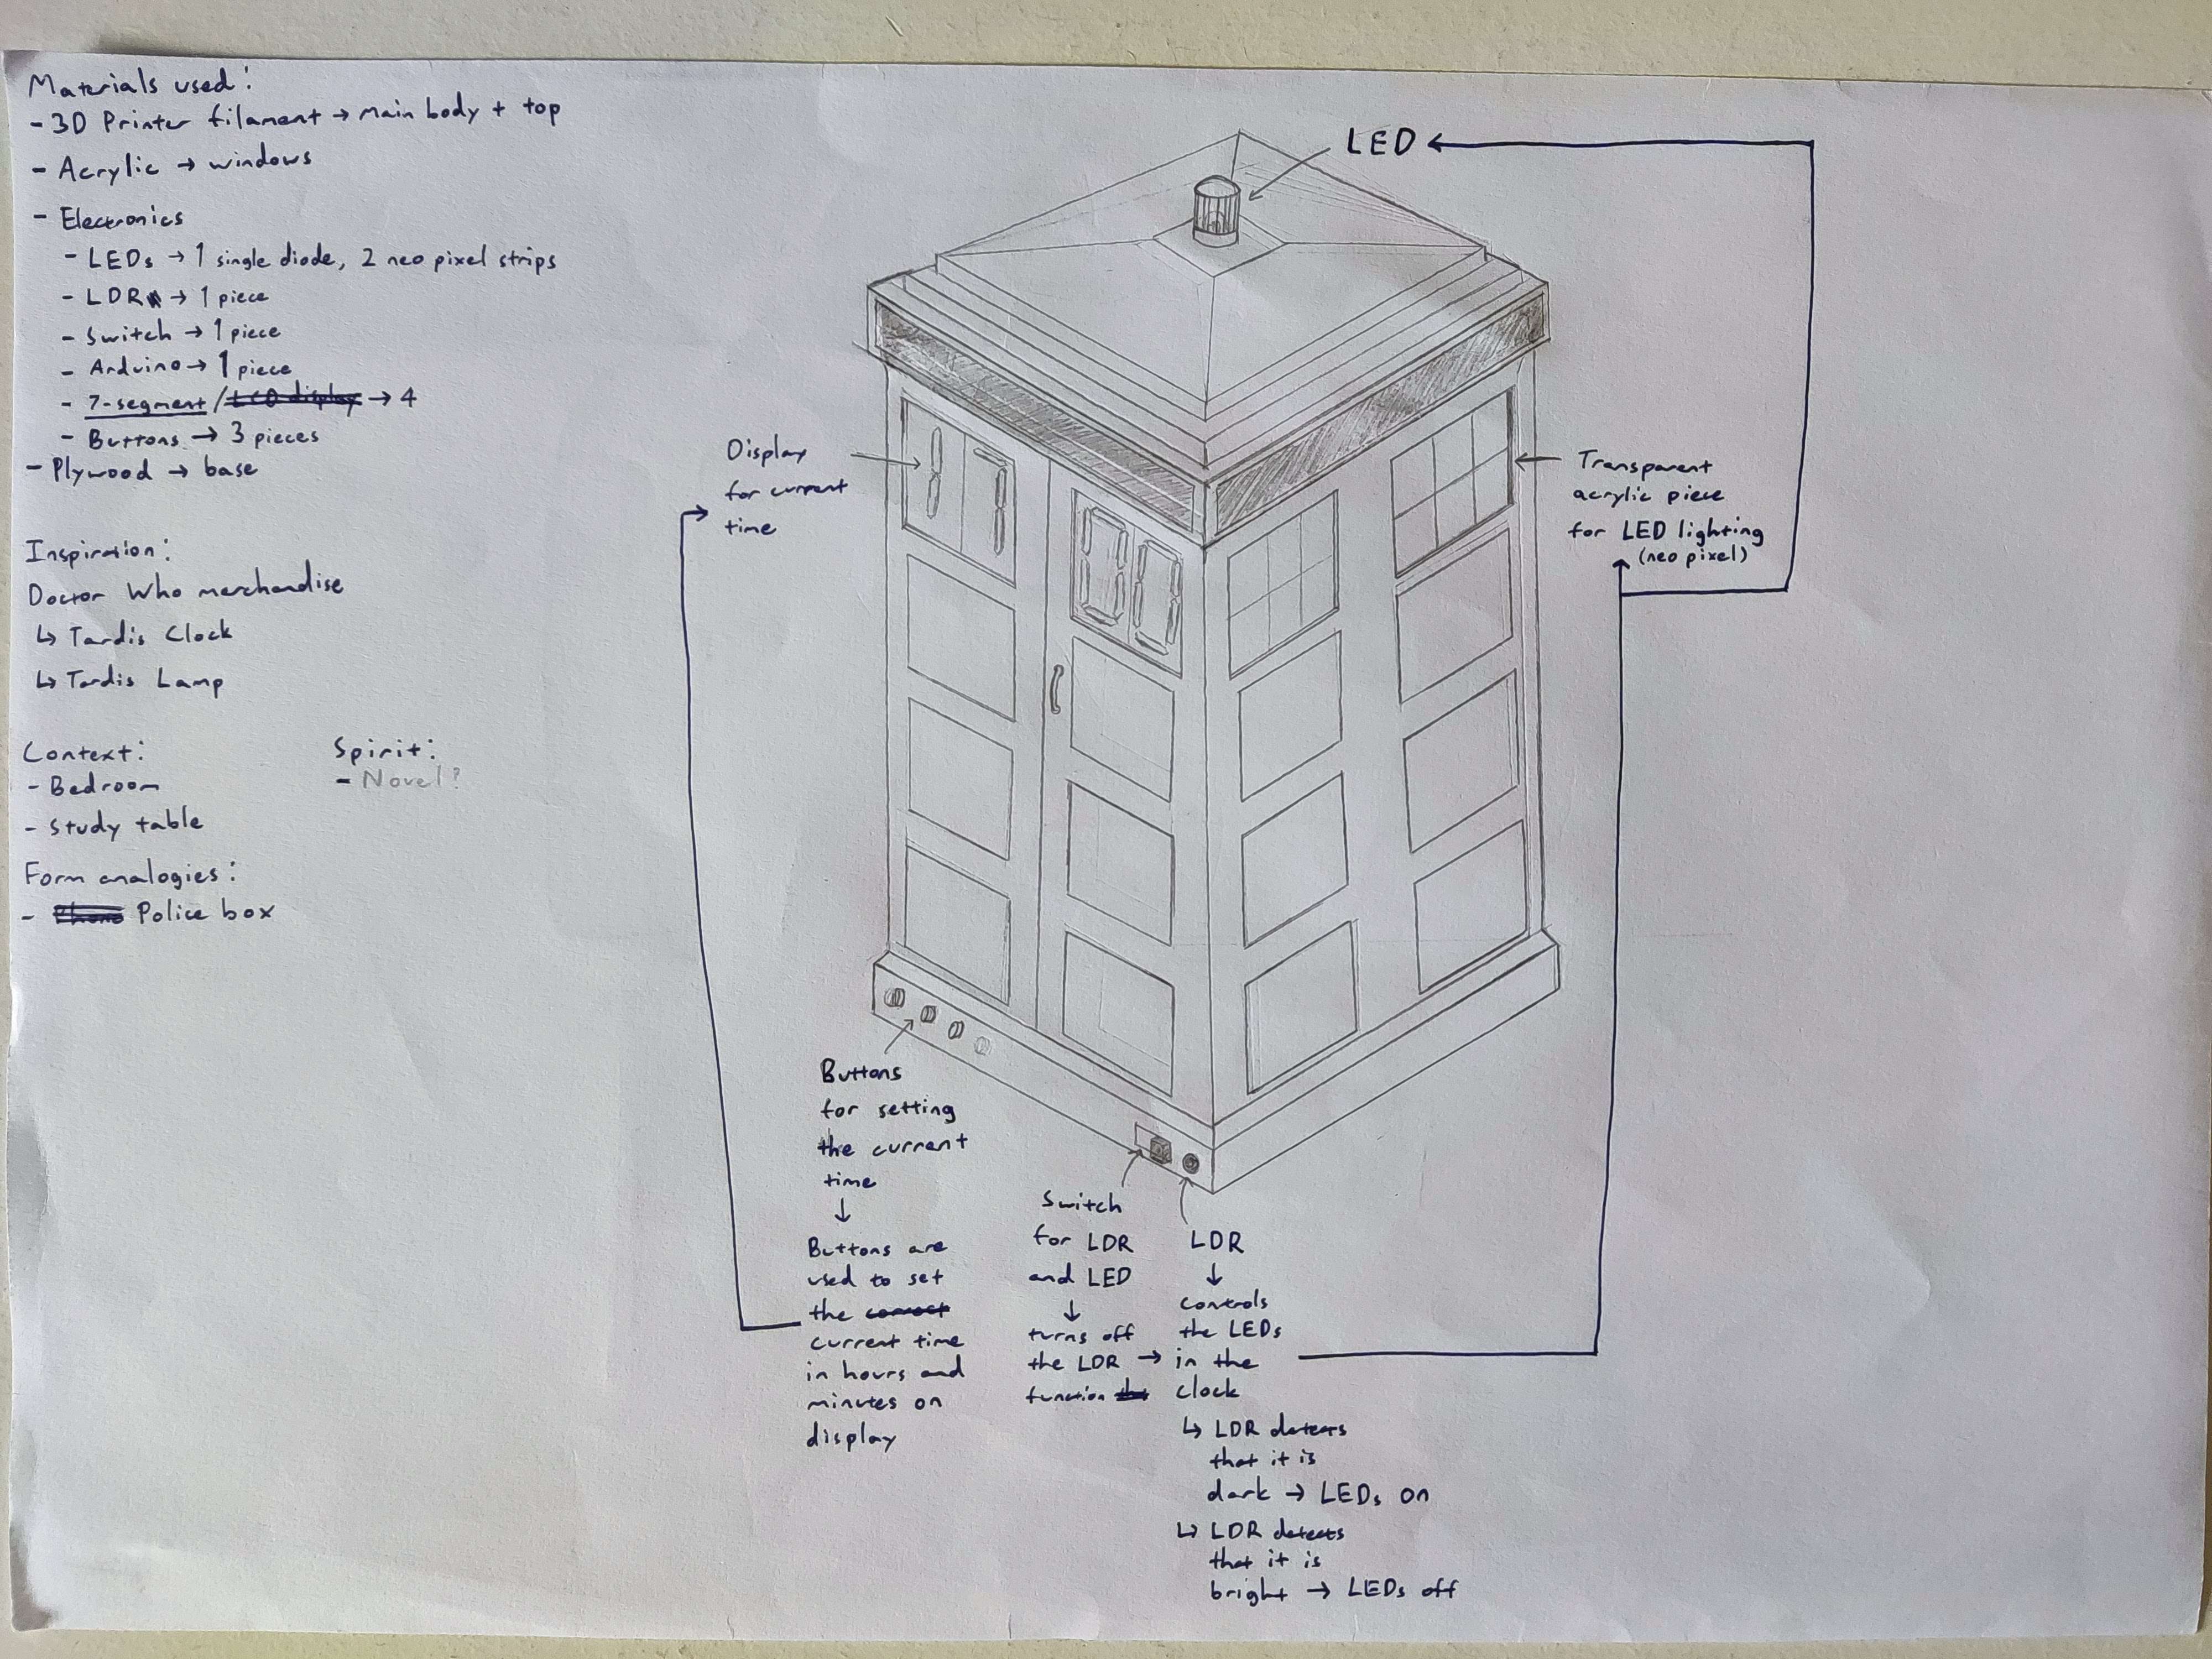 Materials used:
- 3D Printer filament → main body + top
- Acrylic → windows
- Electronics
- LEDs → 1 single diode, 2 neo pixel strips
- LDR → 1 piece
- Switch → 1 piece
- Arduino → 1 piece
- 7-segment / LCD display → 4
- Buttons → 3 pieces
- Plywood → base
Inspiration:
Doctor Who merchandise
↳ Tardis Clock
↳ Tardis Lamp
Context:
- Bedroom
- Study table
Spirit:
- Novel?
Form analogies:
- Phone Police box
LED
Display
for current
time
17
00
Transparent
acrylic piece
for LED lighting
(neo pixel)
Buttons
for setting
the current
time
↓
Buttons are
used to set
the correct
current time
in hours and
minutes on
display
Switch
for LDR
and LED
↓
turns off
the LDR →
function the
LDR
↓
controls
the LEDs
in the
clock
↳ LDR detects
that it is
dark → LEDs on
↳ LDR detects
that it is
bright → LEDs off